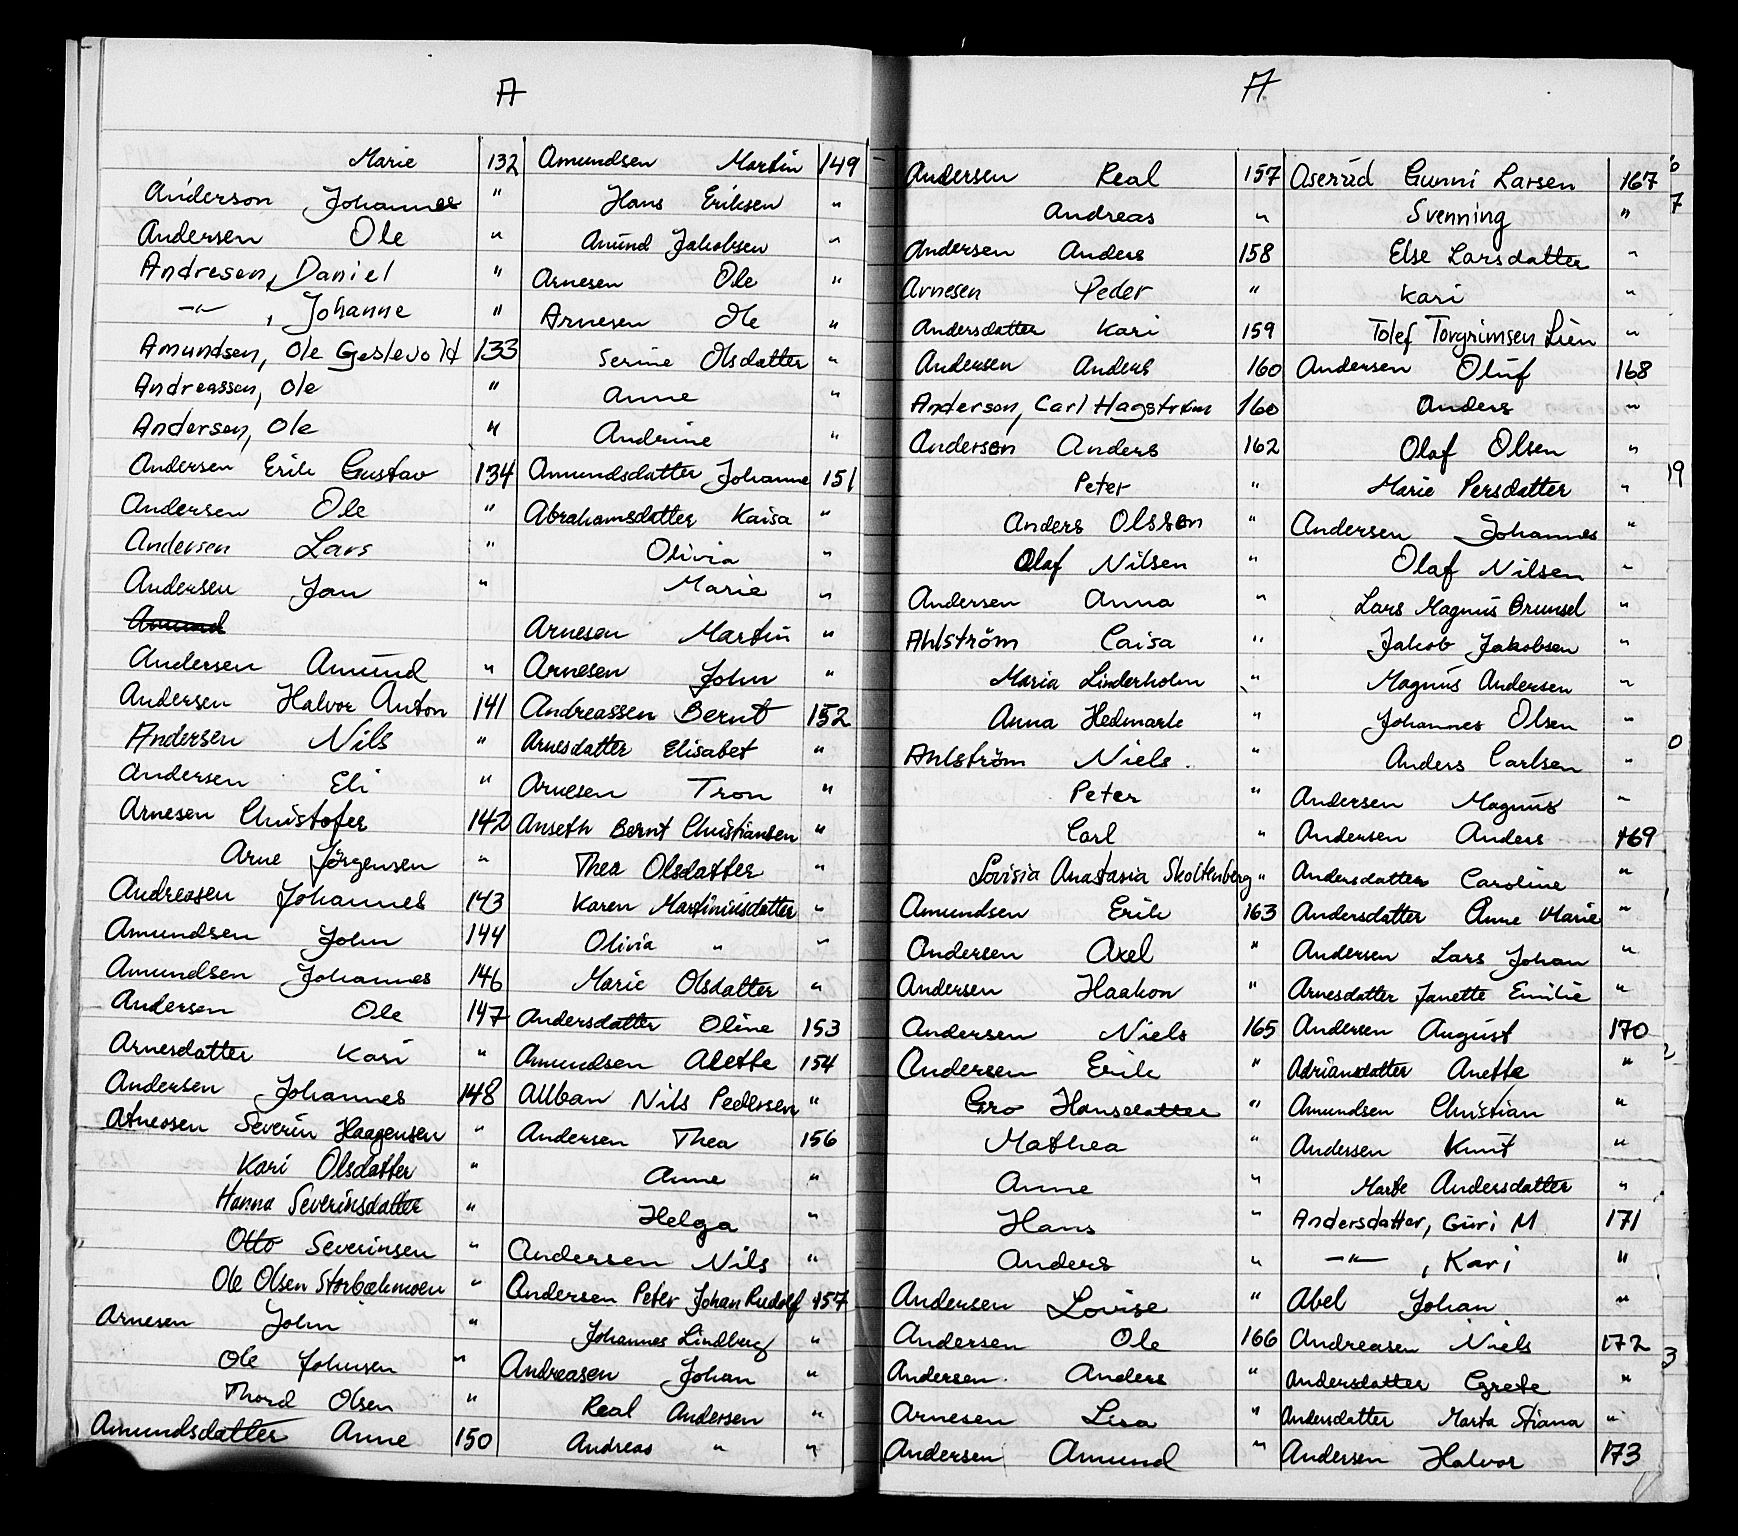 A
Marie 132
Anderson Johannes "
Andersen Ole "
Andresen, Daniel "
-"- , Johanne "
Amundsen, Ole Geslevold 133
Andreassen, Ole "
Andersen, Ole "
Andersen Erik Gustav 134
Andersen Ole "
Andersen Lars "
Andersen Jan "
Amund
Andersen Amund "
Andersen Halvor Anton 141
Andersen Nils "
Andersen Eli "
Arnesen Christofer 142
Arne Jörgensen "
Andreasen Johannes 143
Amundsen John 144
Amundsen Johannes 146
Andersen Ole 147
Arnesdatter Kari "
Andersen Johannes 148
Severin Haagensen "
Kari Olsdatter "
Hanna Severinsdatter "
Otto Severinsen "
Ole Olsen Storbækmoen "
Arnesen John "
Ole Johnsen "
Thord Olsen "
Amundsdatter Anne 150
Amundsen Martin 149
Hans Eriksen "
Amund Jakobsen "
Arnesen Ole "
Arnesen Ole "
Serine Olsdatter "
Anne "
Andrine "
Amundsdatter Johanne 151
Abrahamsdatter Kaisa "
Olivia "
Marie "
Arnesen Martin "
Arnesen John "
Andreassen Bernt 152
Arnesdatter Elisabet "
Arnesen Tron "
Anseth Bernt Christiansen "
Thea Olsdatter "
Karen Martiniusdatter "
Olivia " "
Marie Olsdatter "
Andersdatter Oline 153
Amundsen Alette 154
Allban Nils Pedersen "
Andersen Thea 156
Anne "
Helga "
Andersen Nils "
Andersen Peter Johan Rudolf 157
Johannes Lindberg "
Andreasen Johan "
Real Andersen "
Andreas " "
A
Andersen Real 157
Andreas "
Andersen Anders 158
Arnesen Peder "
Andersdatter Kari 159
Andersen Anders 160
Anderson, Carl Hagstrøm 160
Anderson Anders 162
Peter "
Anders Olsson "
Olaf Nilsen "
Andersen Anna "
Ahlström Caisa "
Maria Linderholm "
Anna Hedmark "
Ahlström Niels "
Peter "
Carl "
Lovisia Anastasia Skoltenberg "
Amundsen Erik 163
Andersen Axel "
Andersen Haakon "
Andersen Niels 165
Andersen Erik "
Gro Hansdatter "
Mathea "
Anne "
Hans "
Anders "
Andersen Lovise "
Andersen Ole 166
Andersen Anders "
Arnesen Lisa "
Andersen Amund "
Aserud Gunni Larsen 167
Svenning "
Else Larsdatter "
Kari "
Tolef Torgrimsen Lien "
Andersen Oluf 168
Anders "
Olaf Olsen "
Marie Persdatter "
Andersen Johannes "
Olaf Nilsen "
Lars Magnus Brunsel "
Jakob Jakobsen "
Magnus Andersen "
Johannes Olsen "
Anders Carlsen "
Andersen Magnus "
Andersen Anders 169
Andersdatter Caroline "
Andersdatter Anne Marie "
Andersen Lars Johan "
Arnesdatter Janette Emilie "
Andersen August 170
Adriansdatter Anette "
Amundsen Christian "
Andersen Knut "
Marte Andersdatter "
Andersdatter, Guri M 171
-"- , Kari "
Abel Johan "
Andreasen Niels 172
Andersdatter Grete "
Andersdatter Marta Stiana "
Andersen Halvor 173